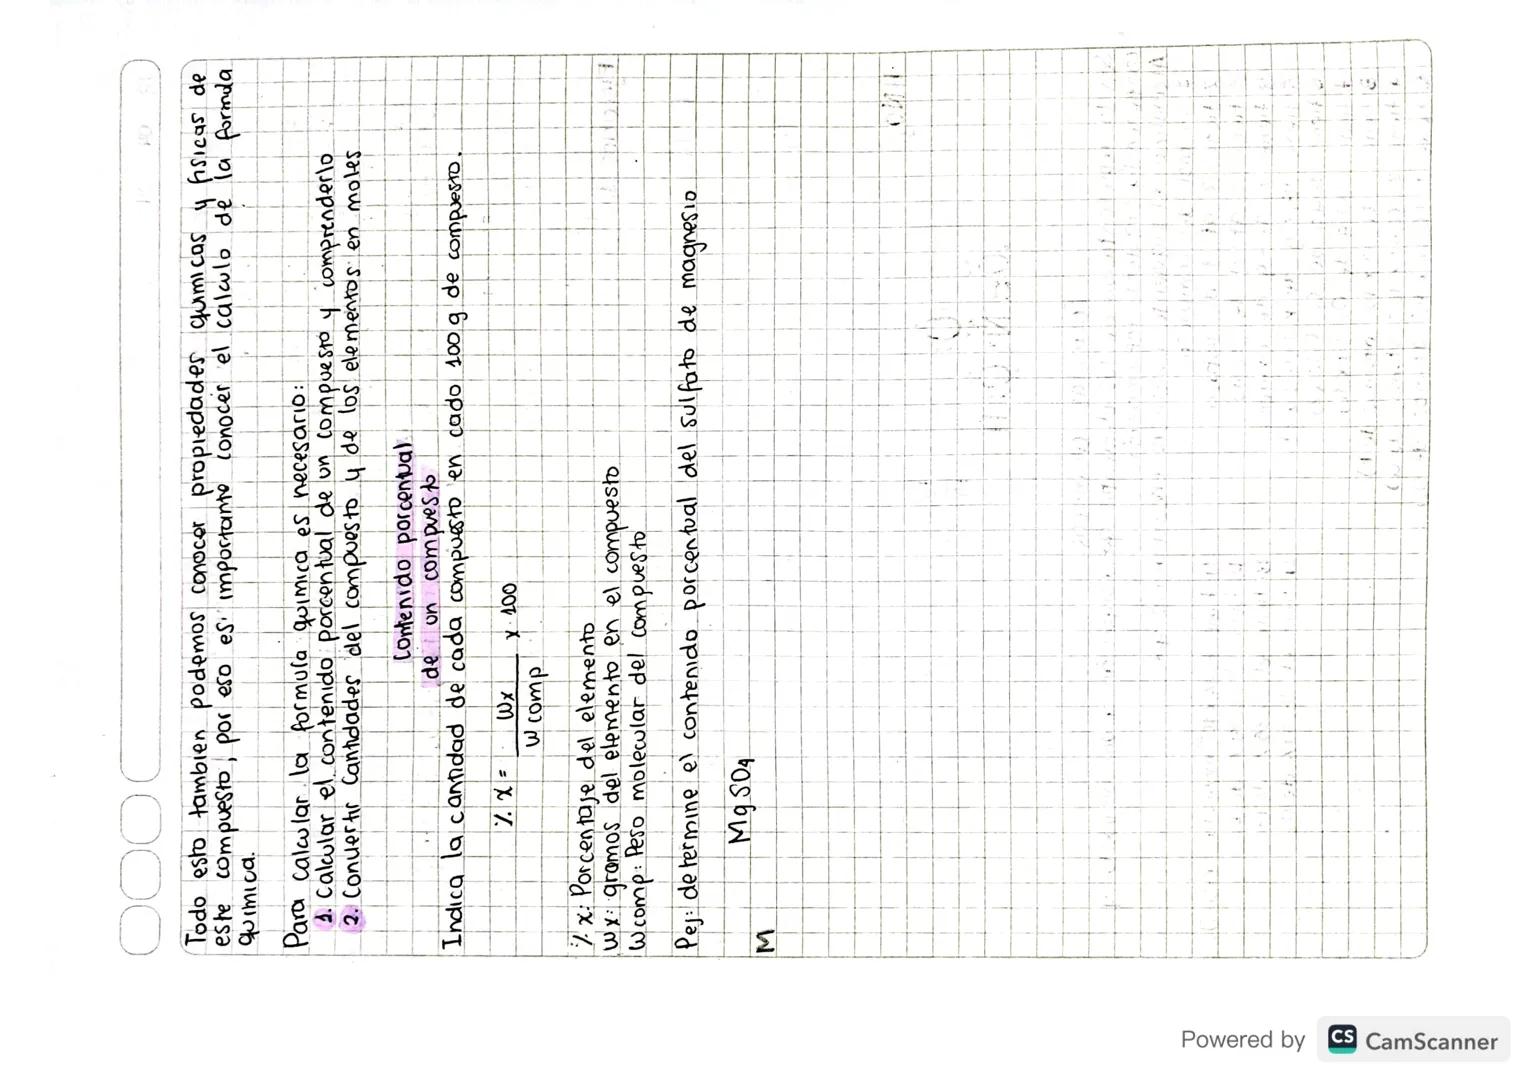 Todo esto tambien podemos conocer propiedades quimicas y fisicas de
este compuesto, por eso es importante conocer el calculo de la formula
quimica.
Para calcular la formula quimica es necesario:
1. Calcular el contenido porcentual de un compuesto y comprenderlo
2. Convertir cantidades del compuesto y de los elementos en moles
Contenido porcentual
de un compuesto
Indica la cantidad de cada compuesto en cado 100g de compuesto.
% x = Wx / W comp x 100
% x: Porcentaje del elemento
Wx: gramos del elemento en el compuesto
Wcomp: Peso molecular del compuesto
Pej: determine el contenido porcentual del sulfato de magnesio
MgSO4
M
Powered by CS CamScanner